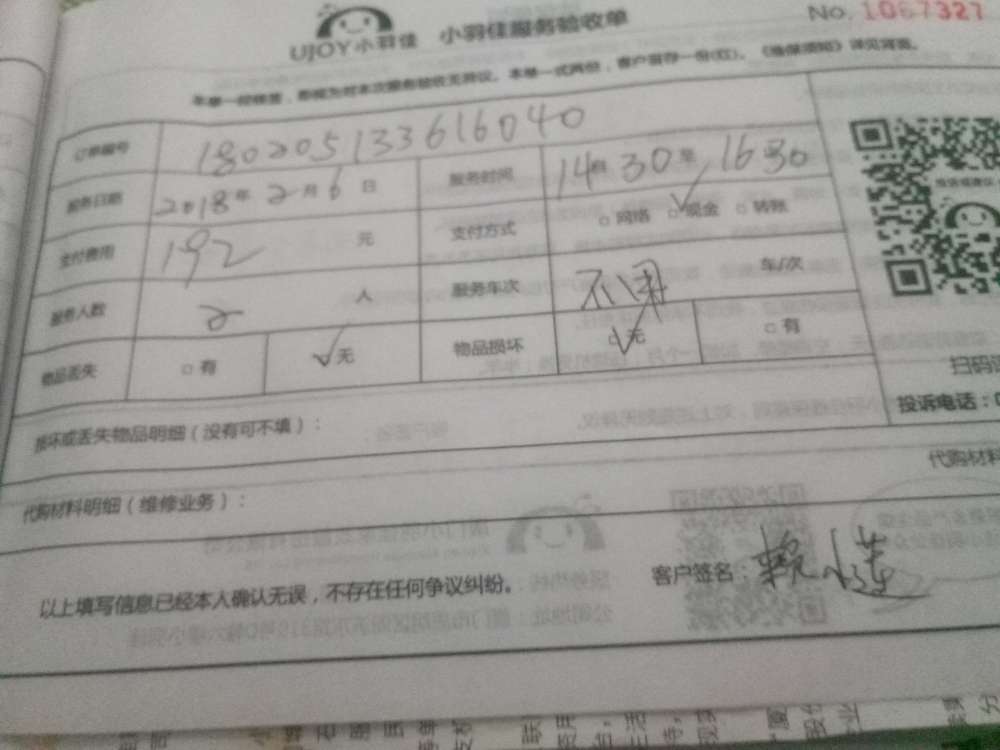 UJOY小羽佳 小羽佳服务验收单 No. 1067327
本单一经签署，即视为对本次服务验收无异议。本单一式两份，客户留存一份(红)。《维保须知》详见背面。
订单编号 180205133616040
服务日期 2018年2月6日 服务时间 14时30 至 1630
支付费用 192 元 支付方式 □网络 □✓现金 □转账
服务人数 2 人 服务车次 不用 车/次
物品丢失 □有 ✓无 物品损坏 □✓无 □有
损坏或丢失物品明细（没有可不填）：
扫码
投诉电话：0
代购材料明细（维修业务）： 代购材料
以上填写信息已经本人确认无误，不存在任何争议纠纷。 客户签名：赖小莲